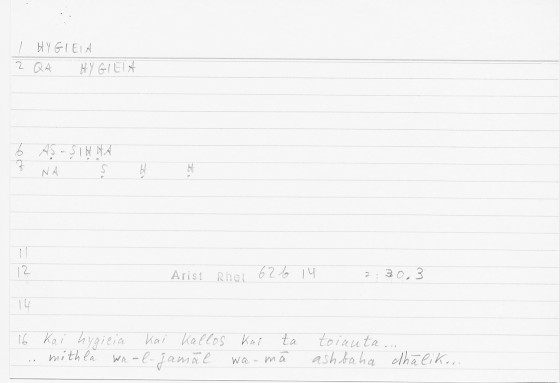 1 HYGIEIA
2 QA HYGIEIA
6 AṢ-ṢIḤḤA
7 NA Ṣ Ḥ Ḥ
11
12 Arist Rhet 62b 14 = 30.3
14
16 kai hygieia kai kallos kai ta toiauta...
.. mithla wa-l-jamāl wa-mā ashbaha dhālik...